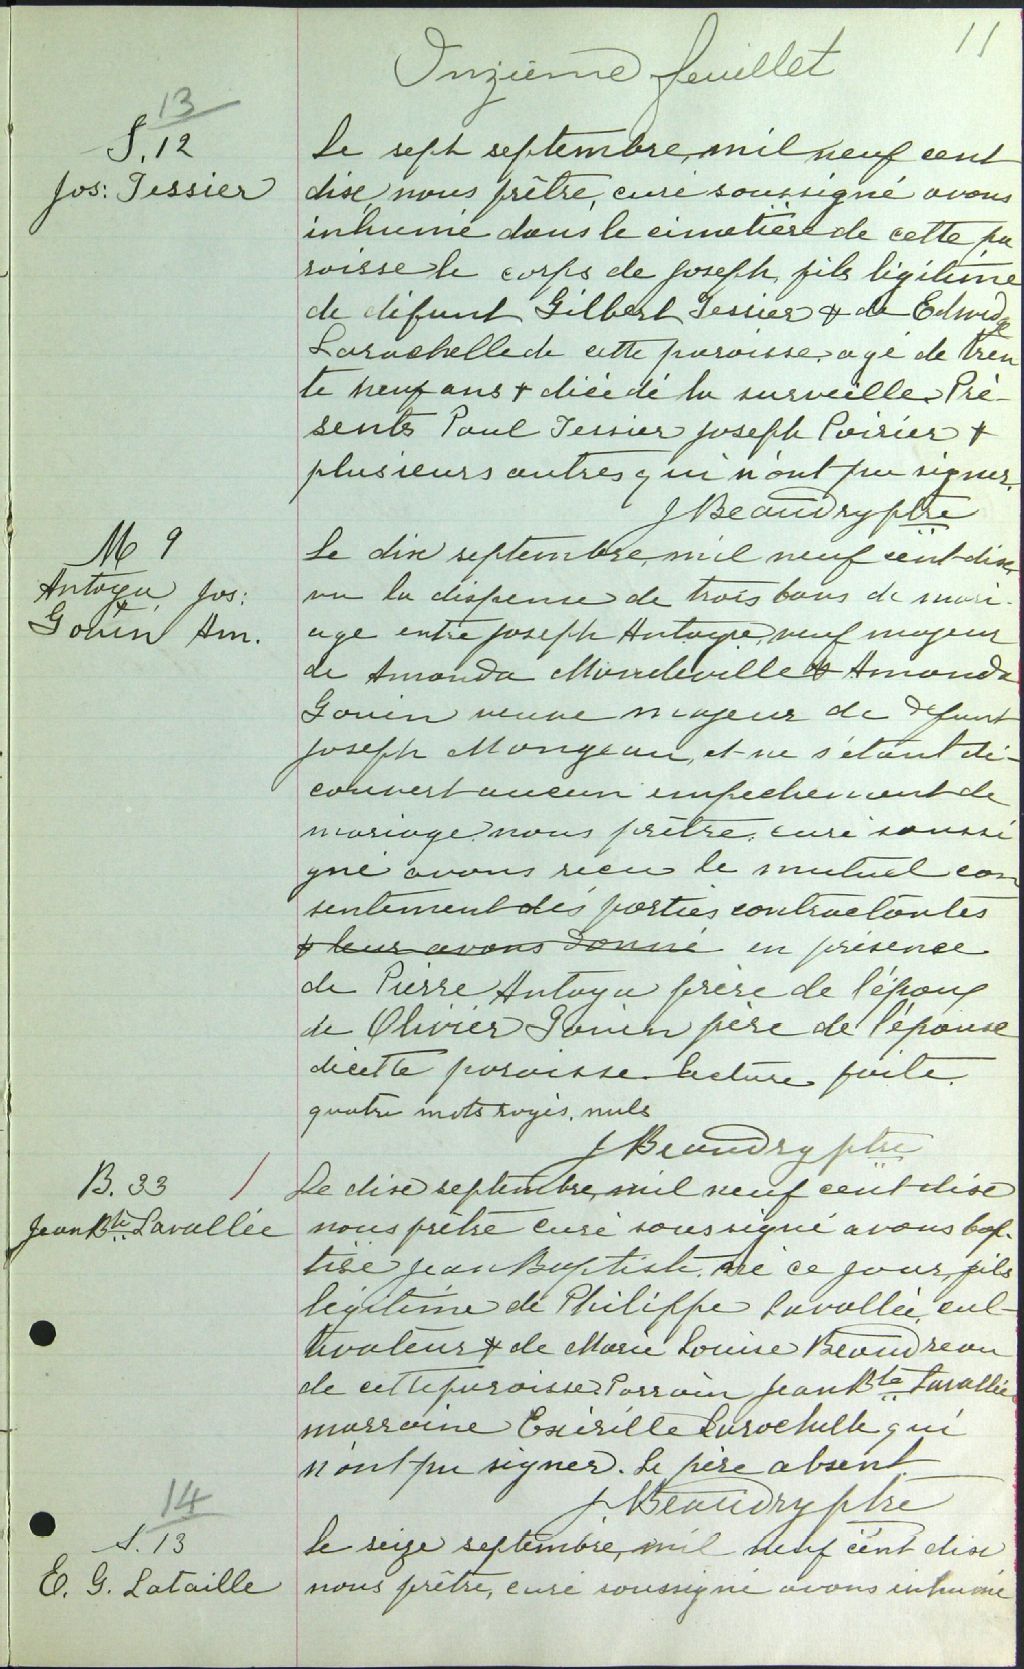 11
Onzième feuillet
13
S. 12
Jos: Tessier
Le sept septembre, mil neuf cent
dix, nous prêtre, curé soussigné avons
inhumé dans le cimetière de cette pa
roisse le corps de Joseph, fils légitime
de défunt Gilbert Tessier & de Edwidge
Larochelle de cette paroisse, agé de tren
te neuf ans & décédé la surveille. Pré-
sents Paul Tessier Joseph Poirier &
plusieurs autres qui n'ont pu signer.
J Beaudry ptre
M 9
Antaya Jos:
&
Gouin Am.
Le dix septembre, mil neuf cent dix,
vu la dispense de trois bans de mari-
age entre Joseph Antaya, veuf majeur
de Amanda Mandeville & Amanda
Gouin veuve majeur de defunt
Joseph Mongeau, et ne s'étant dé-
couvert aucun empechement de
mariage nous prêtre, curé soussi
gné avons recu le mutuel con
sentement des parties contractantes
& leur avons donné en présence
de Pierre Antaya frère de l'époux
de Olivier Gouin père de l'épouse
de cette paroisse. Lecture faite.
quatre mots rayés. nuls
J Beaudry ptre
B. 33
Jean Bte Lavallée
Le dix septembre, mil neuf cent dix
nous prêtre curé soussigné avons bap-
tisé Jean Baptiste, né ce jour, fils
légitime de Philippe Lavallée, cul-
tivateur & de Marie Louise Beaudreau
de cette paroisse. Parrain Jean Bte Lavallée
marraine Exérille Larochelle qui
n'ont pu signer. Le père absent.
J Beaudry ptre
14
S. 13
E. G. Lataille
Le seize septembre, mil neuf cent dix
nous prêtre, curé soussigné avons inhumé